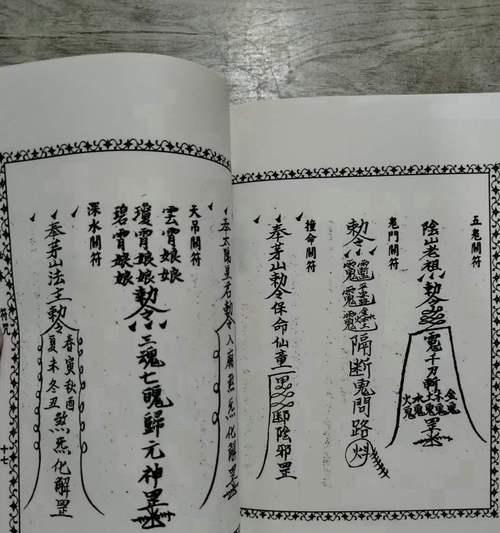 五鬼關符
陰山老祖勅令
千刀斬
金鬼
木鬼
土鬼
水鬼
火鬼
罡
鬼門關符
勅令
隔斷鬼問路
撞命關符
奉茅山勅令保命仙童
陰邪罡
奉太陽星君勅令
天吊關符
雲霄娘娘
瓊霄娘娘
碧霄娘娘
勅令三魂七魄歸元神罡
深水關符
奉茅山法主勅令
春寅秋酉
夏未冬丑
煞炁化解罡
符咒
十七